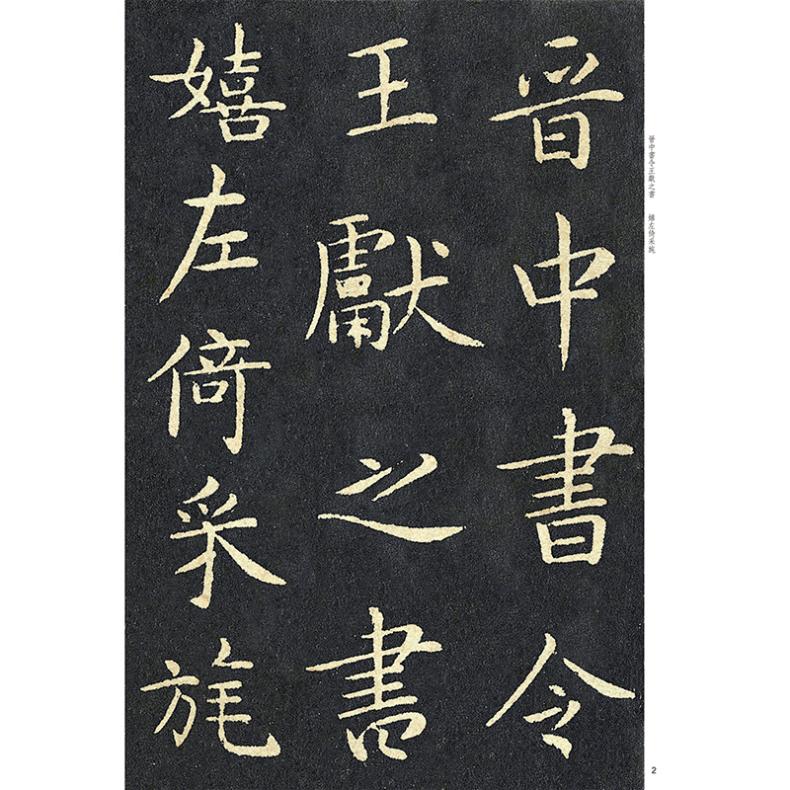 晉中書令
王獻之書
嬉左倚采旄
晉中書令王獻之書 嬉左倚采旄
2